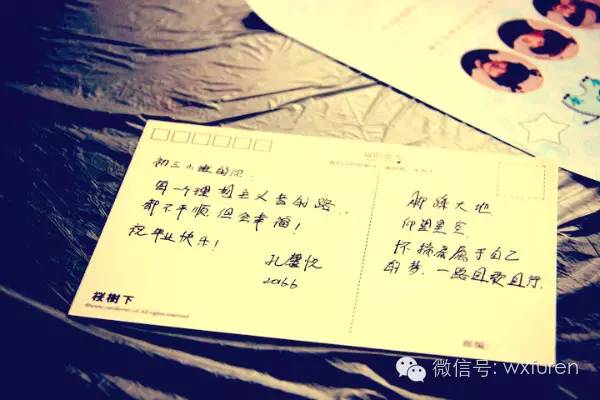 初三小班的你：
每一个理想主义者的路
都不平顺但会幸福！
祝毕业快乐！
孔馨悦
2066
脚踩大地
仰望星空
怀揣着属于自己
的梦，一路且歌且行.
桜樹下
All rights reserved.
邮编：
微信号: wxfuren